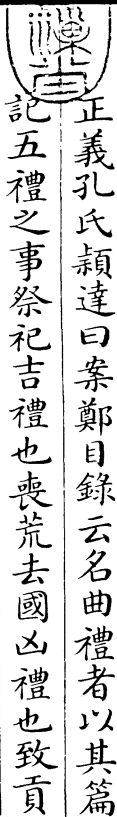 正義孔氏穎達曰案鄭目錄云名曲禮者以其篇
記五禮之事祭祀吉禮也喪荒去國凶禮也致貢